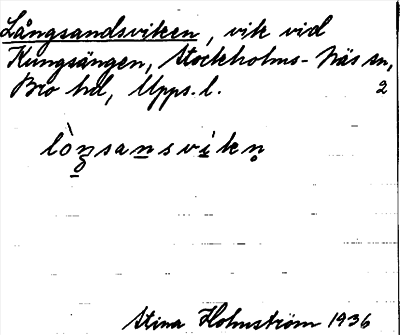 Långsandsviken, vik vid
Kungsängen, Stockholms-Näs sn,
Bro hd, Upps. l. 2
lòŋsansvikn̥
Stina Holmström 1936